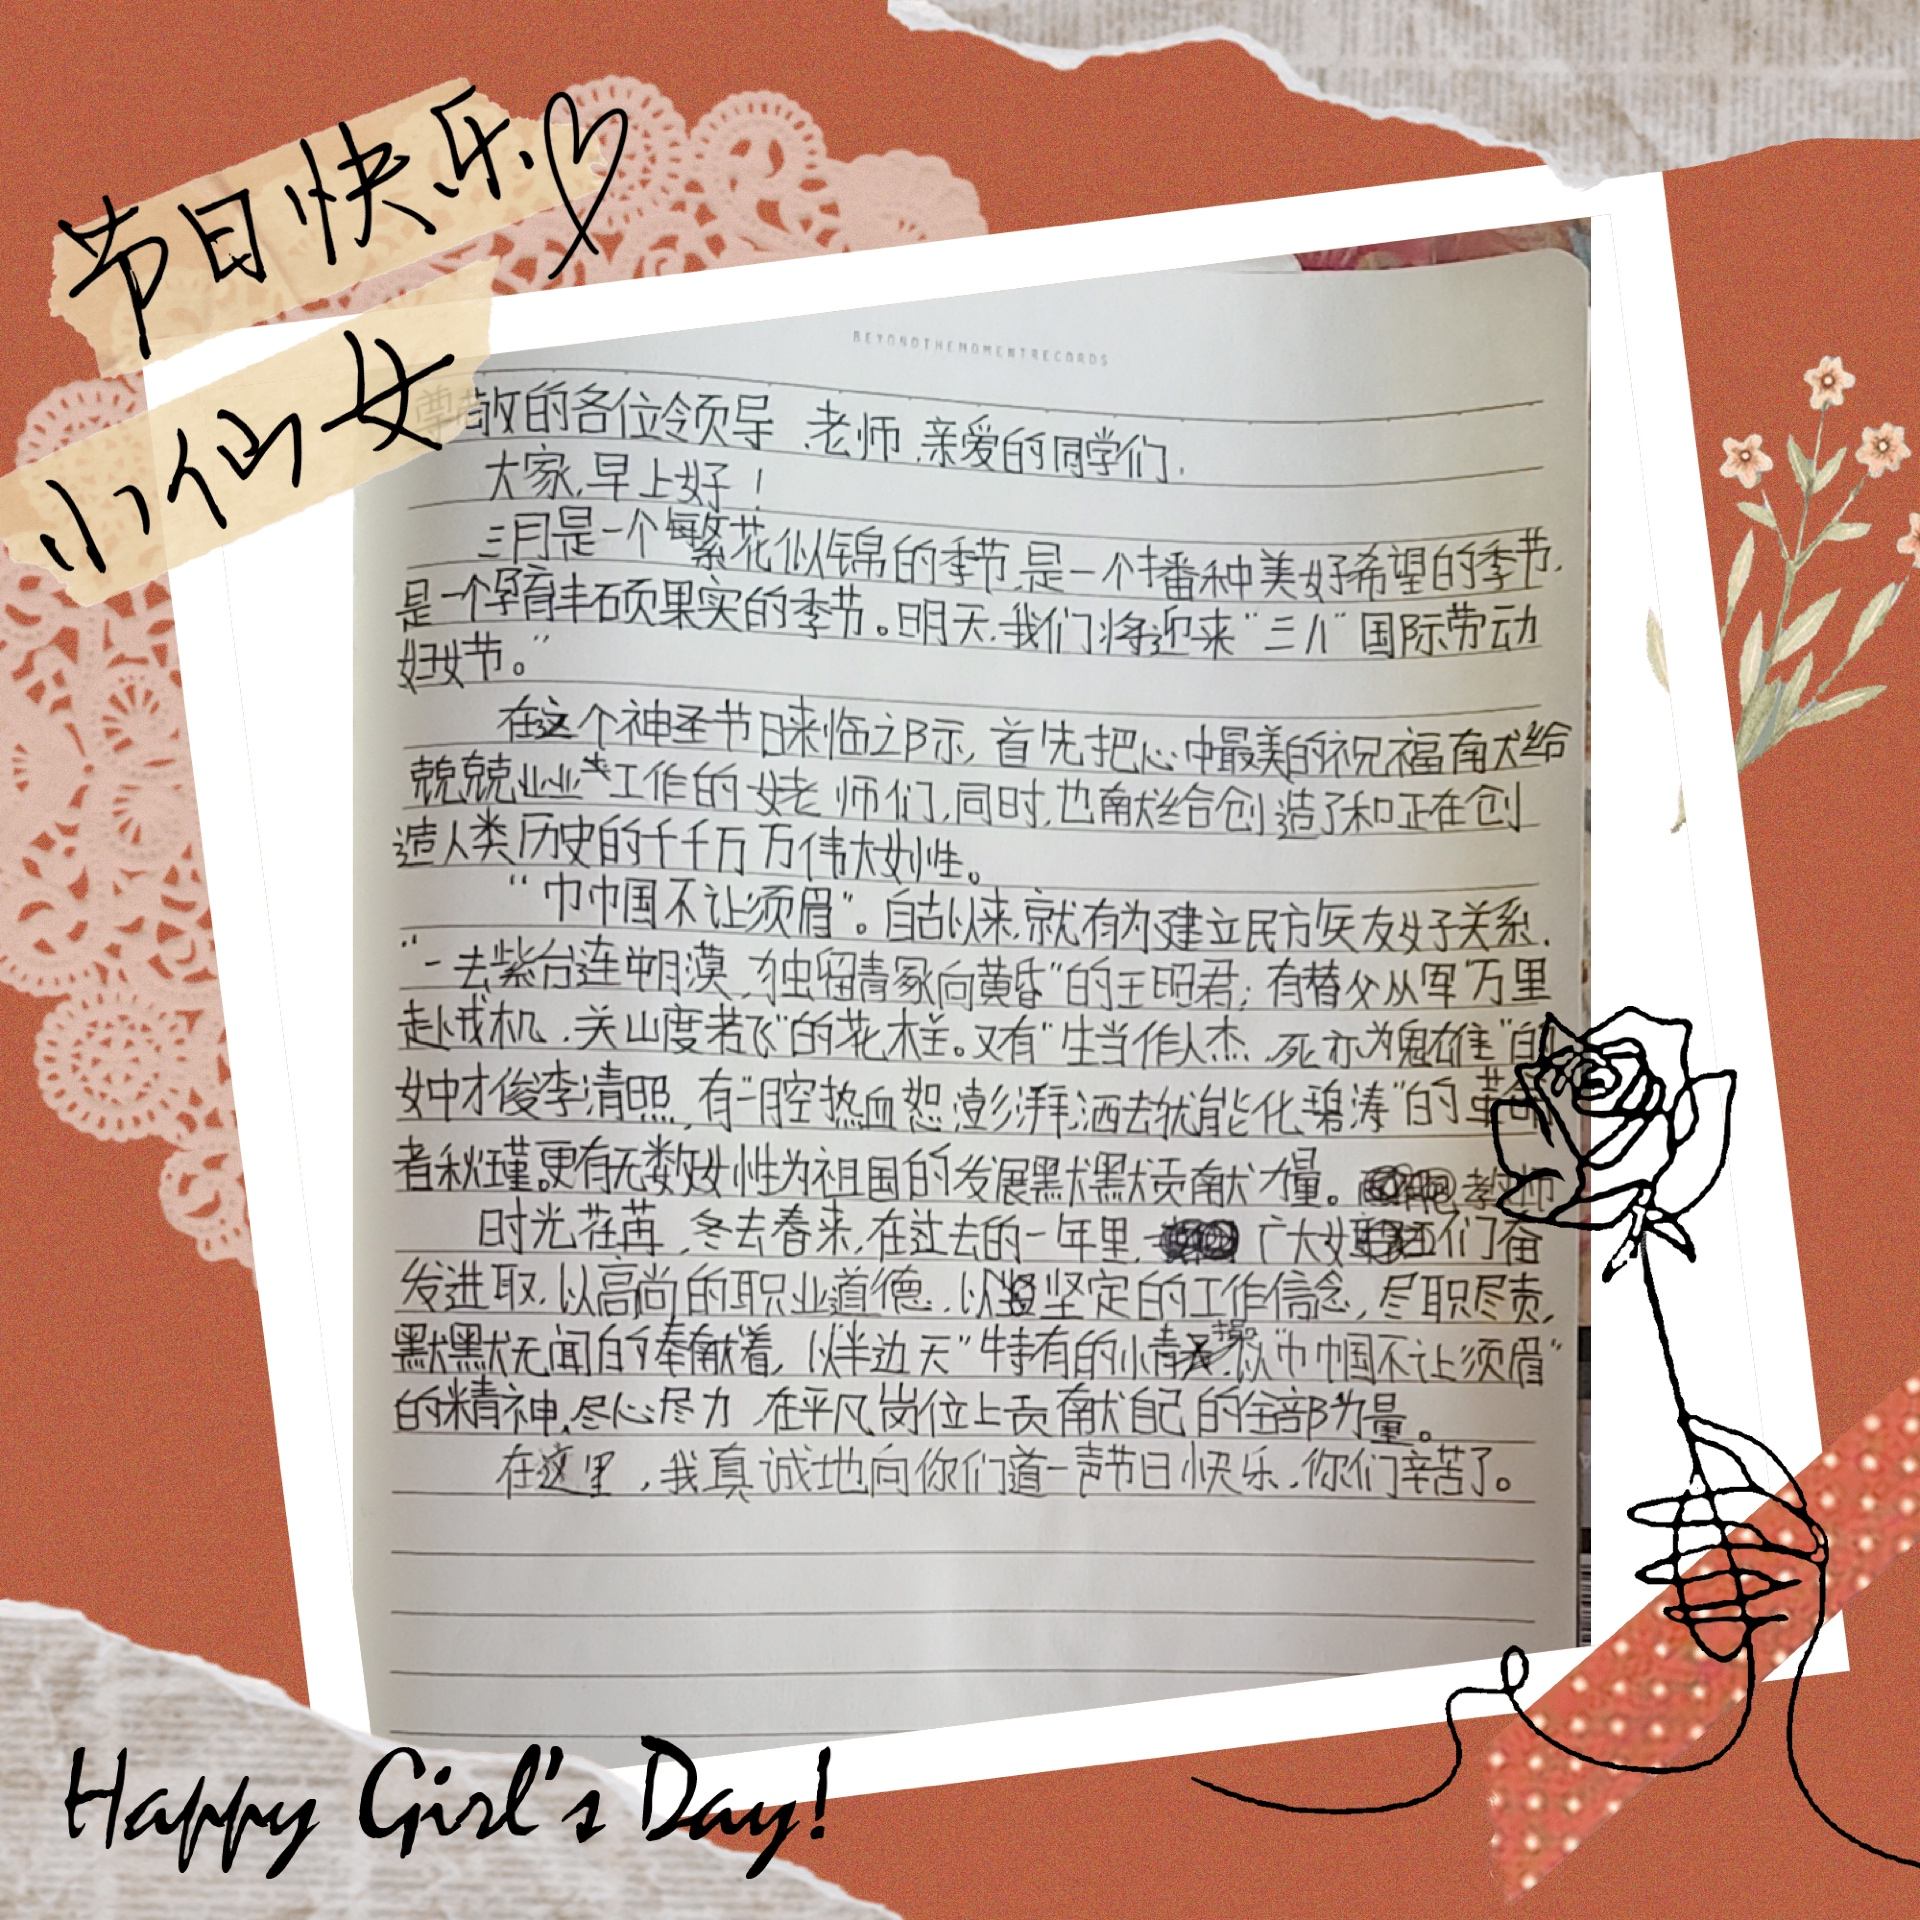 节日快乐
小仙女
BEYONDTHEMOMENTRECORDS
尊敬的各位领导、老师、亲爱的同学们,
大家,早上好!
三月是一个繁花似锦的季节,是一个播种美好希望的季节,
是一个孕育丰硕果实的季节。明天,我们将迎来“三八”国际劳动
妇女节。”
在这个神圣节日来临之际,首先把心中最美的祝福献给
兢兢业业工作的女老师们,同时,也献给创造了和正在创
造人类历史的千千万万伟大女性。
“巾帼不让须眉”。自古以来,就有为建立民族友好关系,
“一去紫台连朔漠,独留青冢向黄昏”的王昭君;有替父从军“万里
赴戎机,关山度若飞”的花木兰。又有“生当作人杰,死亦为鬼雄”的
女中才俊李清照,有“一腔热血恕澎湃,洒去犹能化碧涛”的革命
者秋瑾。更有无数女性为祖国的发展默默贡献力量。
教师
时光荏苒,冬去春来,在过去的一年里,广大女们奋
发进取,以高尚的职业道德,以坚定的工作信念,尽职尽责,
默默无闻的奉献着,以“半边天”特有的小情操,以“巾帼不让须眉”
的精神,尽心尽力,在平凡岗位上贡献自己的全部力量。
在这里,我真诚地向你们道一声节日快乐,你们辛苦了。
Happy Girl's Day!